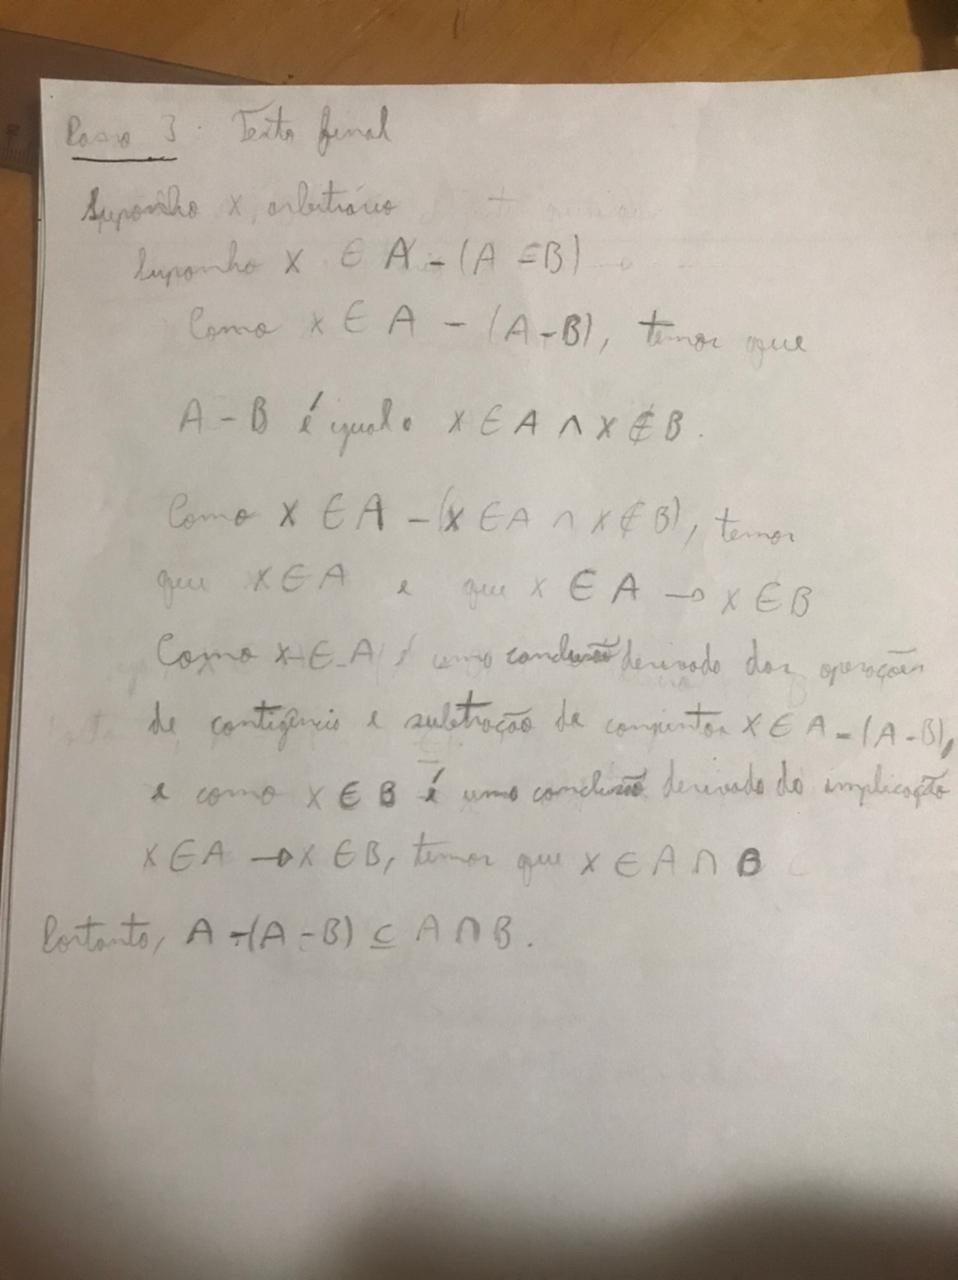 Passo 3. Texto final
Suponho x, arbitrário
Suponho x ∈ A - (A - B)
Como x ∈ A - (A - B), temos que
A - B é igual a x ∈ A ∧ x ∉ B.
Como x ∈ A - (x ∈ A ∧ x ∉ B), temos
que x ∈ A e que x ∈ A → x ∈ B
Como x ∈ A é uma conclusão derivada das operações
de contigência e subtração de conjuntos x ∈ A - (A - B),
e como x ∈ B é uma conclusão derivada da implicação
x ∈ A → x ∈ B, temos que x ∈ A ∩ B
Portanto, A - (A - B) ⊆ A ∩ B.